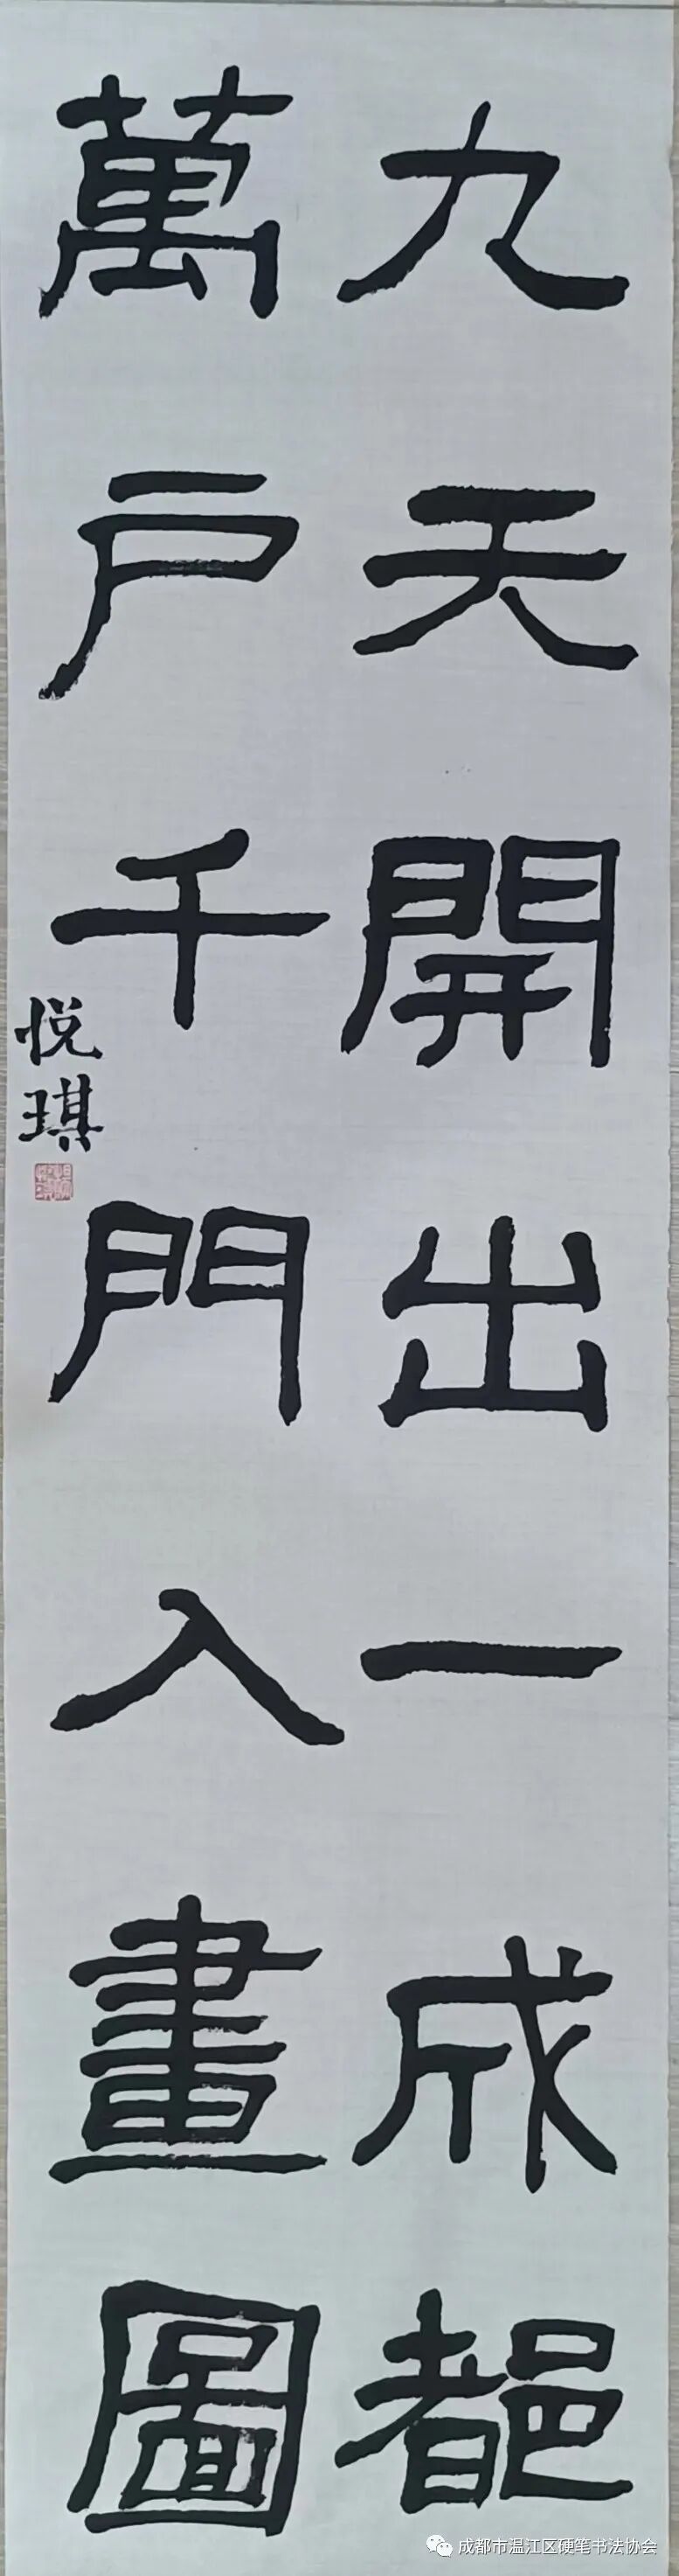 九天開出一成都
萬户千門入畫圖
悦琪
成都市温江区硬笔书法协会